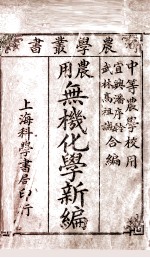 農學叢書
中等農學校用
宜興潘序倫
武林高祖誠
合編
農用無機化學新編
上海科學書局印行